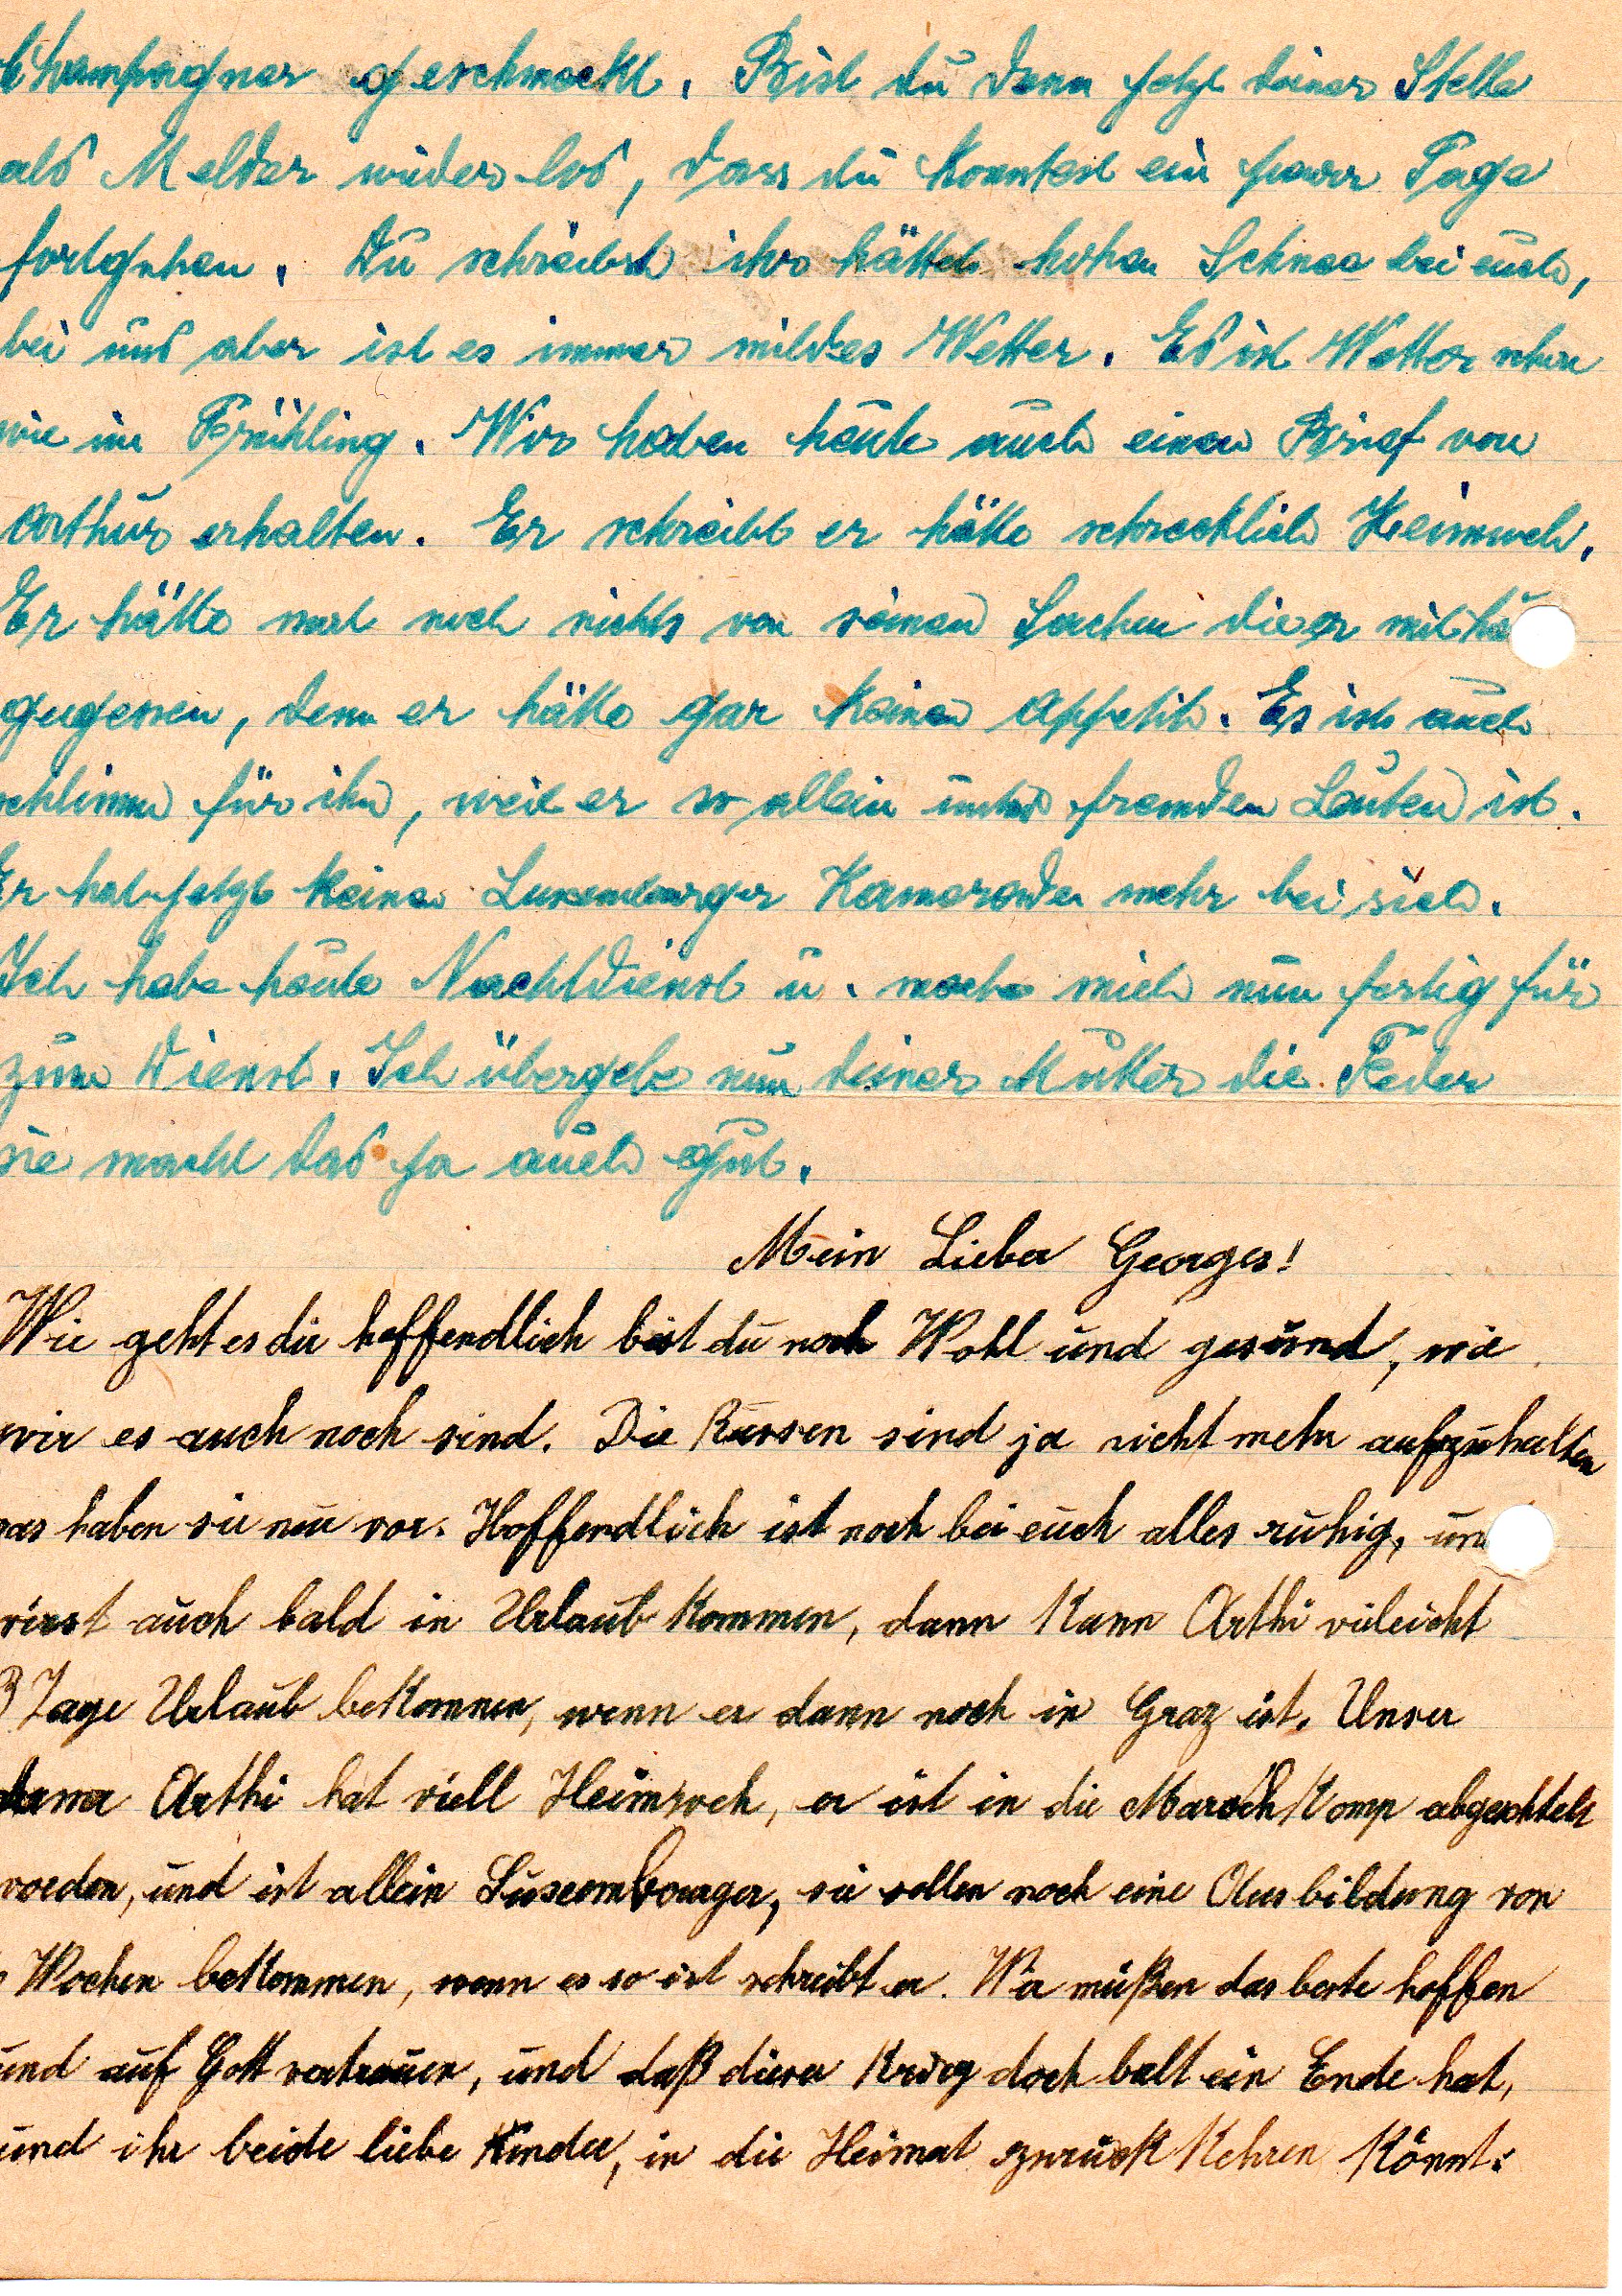 Champagner geschmeckt. Bist du denn jetzt deiner Stelle
als Melder wieder los, dass du konntest ein paar Tage
fortgehen. Du schreibst ihr hättet hohen Schnee bei euch,
bei uns aber ist es immer mildes Wetter. Es ist Wetter schon
wie im Frühling. Wir haben heute auch einen Brief von
Arthur erhalten. Er schreibt er hätte schrecklich Heimweh.
Er hätte noch nichts von seinen Sachen die er mit
gegessen, denn er hätte gar keinen Appetit. Es ist auch
schlimm für ihn, weil er so allein unter fremden Leuten ist.
Er hat jetzt keinen Luxemburger Kameraden mehr bei sich.
Ich habe heute Nachtdienst u. mache mich nun fertig für
zum Dienst. Ich übergebe nun deiner Mutter die Feder
sie macht das ja auch gut.
Mein Lieber Georges!
Wie geht es dir hoffendlich bist du noch Wohl und gesund, wie
wir es auch noch sind. Die Russen sind ja nicht mehr aufzuhalten
was haben sie nun vor. Hoffendlich ist noch bei euch alles ruhig, und
wirst auch bald in Urlaub kommen, dann kann Arthi vieleicht
3 Tage Urlaub bekommen, wenn er dann noch in Graz ist. Unser
armer Arthi hat viell Heimweh, er ist in die Marsch Komp abgestellt
worden, und ist allein Luxembourger, sie sollen noch eine Ausbildung von
Wochen bekommen, wenn es so ist schreibt er. Wir müßen das beste hoffen
und auf Gott vertrauen, und daß dieser Krieg doch balt ein Ende hat,
und ihr beide liebe Kinder, in die Heimat zurück kehren könnt.